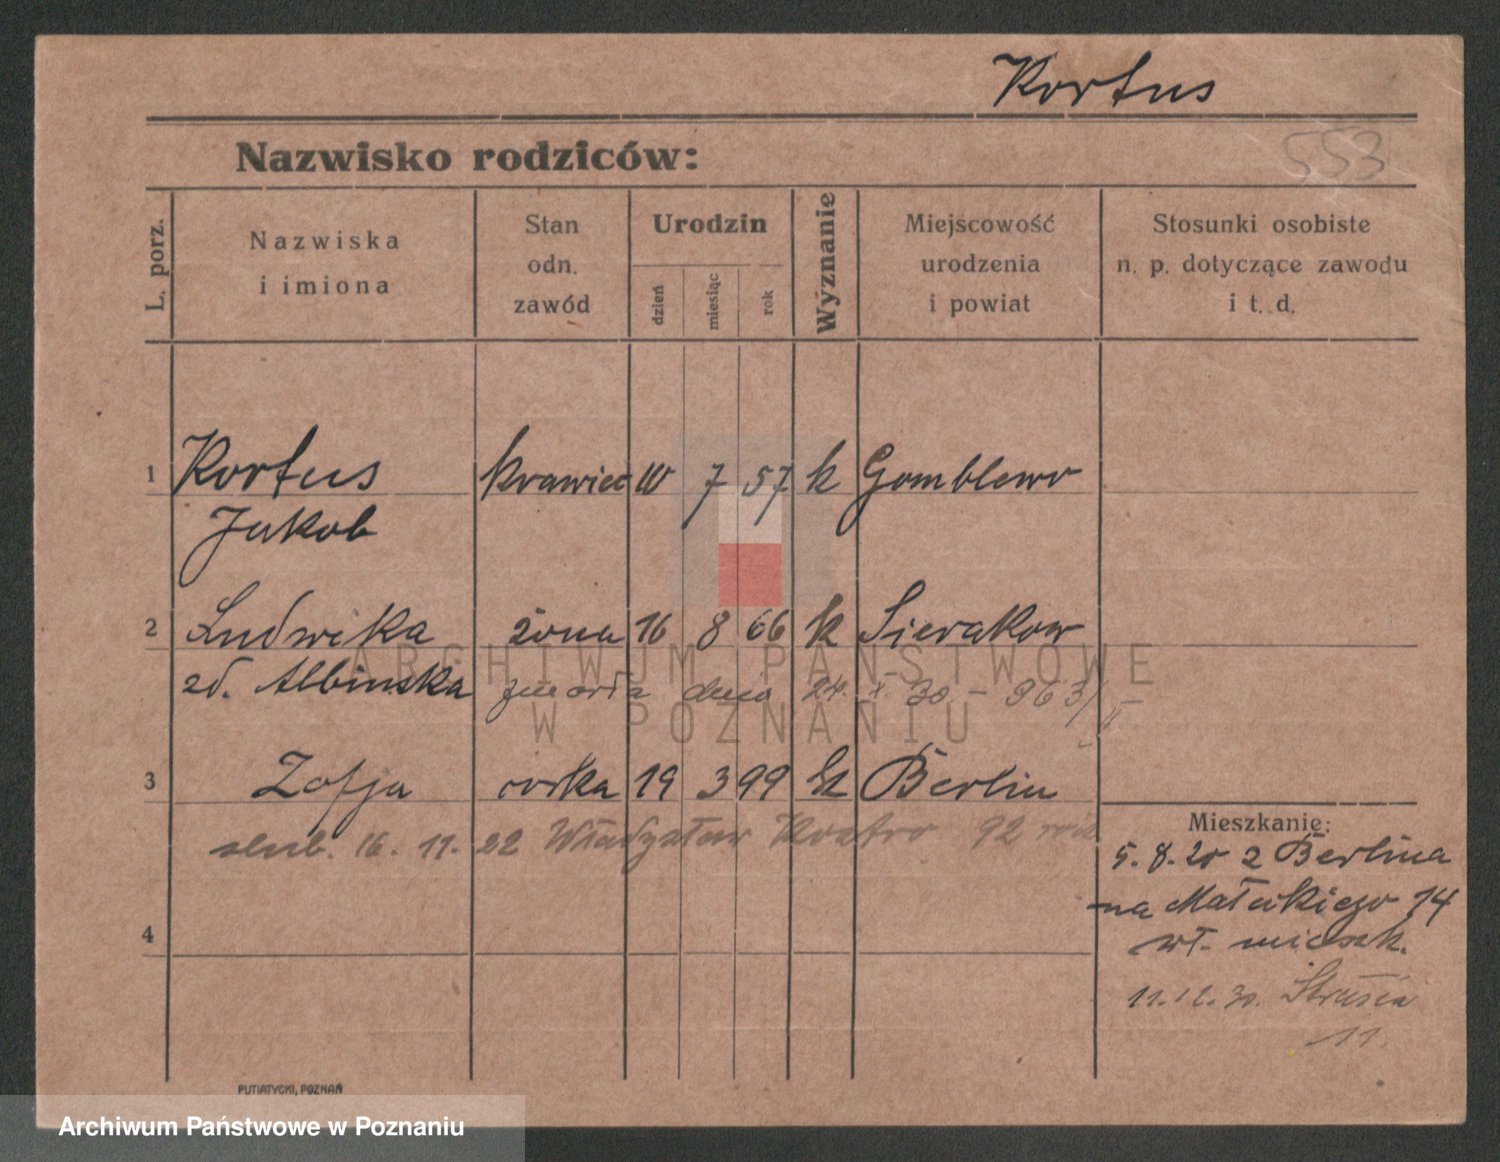 Kortus
553
Nazwisko rodziców:
L. porz.
Nazwiska
i imiona
Stan
odn.
zawód
Urodzin
dzień
miesiąc
rok
Wyznanie
Miejscowość
urodzenia
i powiat
Stosunki osobiste
n. p. dotyczące zawodu
i t. d.
1 Kortus krawiec 10 7 57 k Gomblewo
Jakob
2 Ludwika żona 16 8 66 k Sierakow
zd. Albinska zmarła dnia 24. X. 30 - 963/II
3 Zofja corka 19 3 99 k Berlin
slub. 16. 11. 22 Władysław 92
4
Mieszkanie:
5. 8. 20 z Berlina
na Małeckiego 14
wł. mieszk.
11.12.30. Strusia
11.
PUTIATYCKI, POZNAŃ
ARCHIWUM PAŃSTWOWE
W POZNANIU
Archiwum Państwowe w Poznaniu